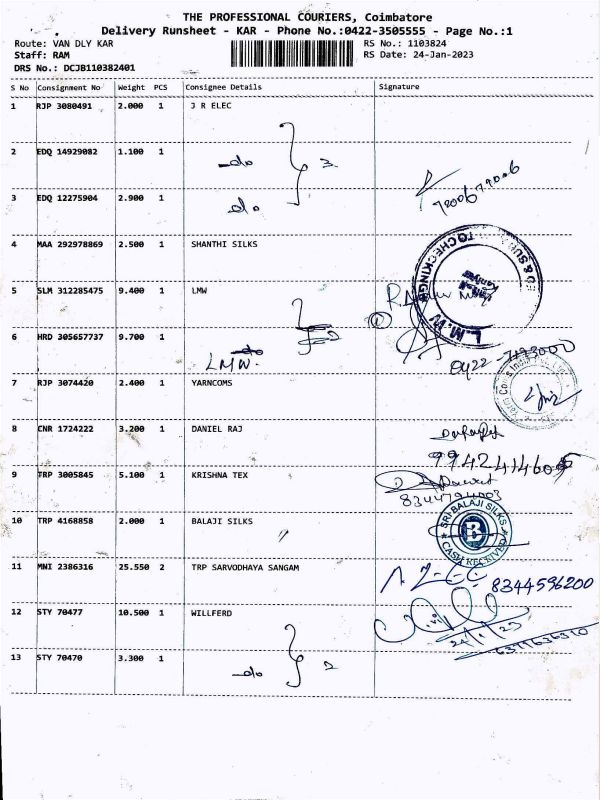 THE PROFESSIONAL COURIERS, Coimbatore
Delivery Runsheet - KAR - Phone No.:0422-3505555 - Page No.:1
Route: VAN DLY KAR RS No.: 1103824
Staff: RAM RS Date: 24-Jan-2023
DRS No.: DCJB110382401
S No Consignment No Weight PCS Consignee Details Signature
1 RJP 3080491 2.000 1 J R ELEC
2 EDQ 14929082 1.100 1 -do 3
3 EDQ 12275904 2.900 1 do
4 MAA 292978869 2.500 1 SHANTHI SILKS
5 SLM 312285475 9.400 1 LMW
6 HRD 305657737 9.700 1
LMW.
L.M.W
7 RJP 3074420 2.400 1 YARNCOMS
8 CNR 1724222 3.200 1 DANIEL RAJ
9 TRP 3005845 5.100 1 KRISHNA TEX
8344794003
10 TRP 4168858 2.000 1 BALAJI SILKS
SRI BALAJI SILKS
B
CASH RECEIVED
11 MNI 2386316 25.550 2 TRP SARVODHAYA SANGAM
8344596200
12 STY 70477 10.500 1 WILLFERD
24/1/23
13 STY 70470 3.300 1 -do 2